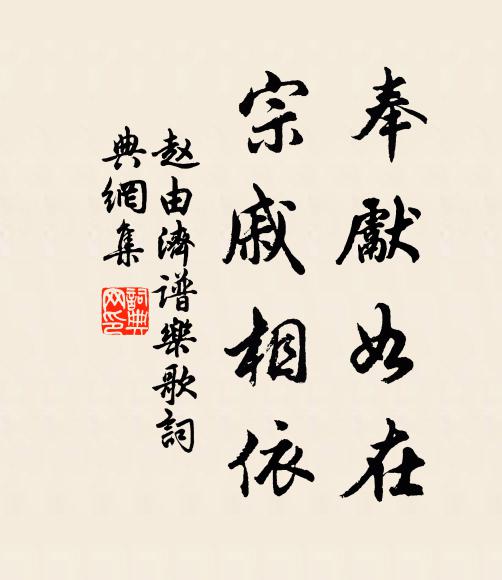 奉獻如在
宗戚相依
赵由濟谱樂歌詞
典網集
詞典网印